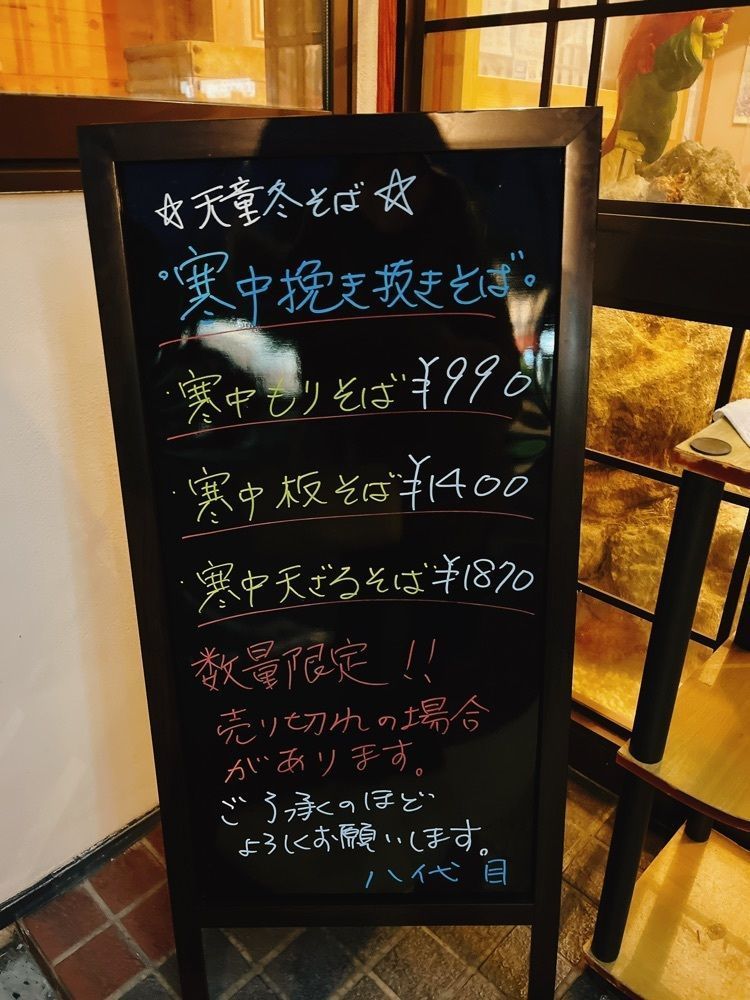 ☆天童冬そば☆
寒中挽き抜きそば
・寒中もりそば ¥990
・寒中板そば ¥1400
・寒中天ざるそば ¥1870
数量限定!!
売り切れの場合
があります。
ご了承くのほど
よろしくお願いします。
八代目